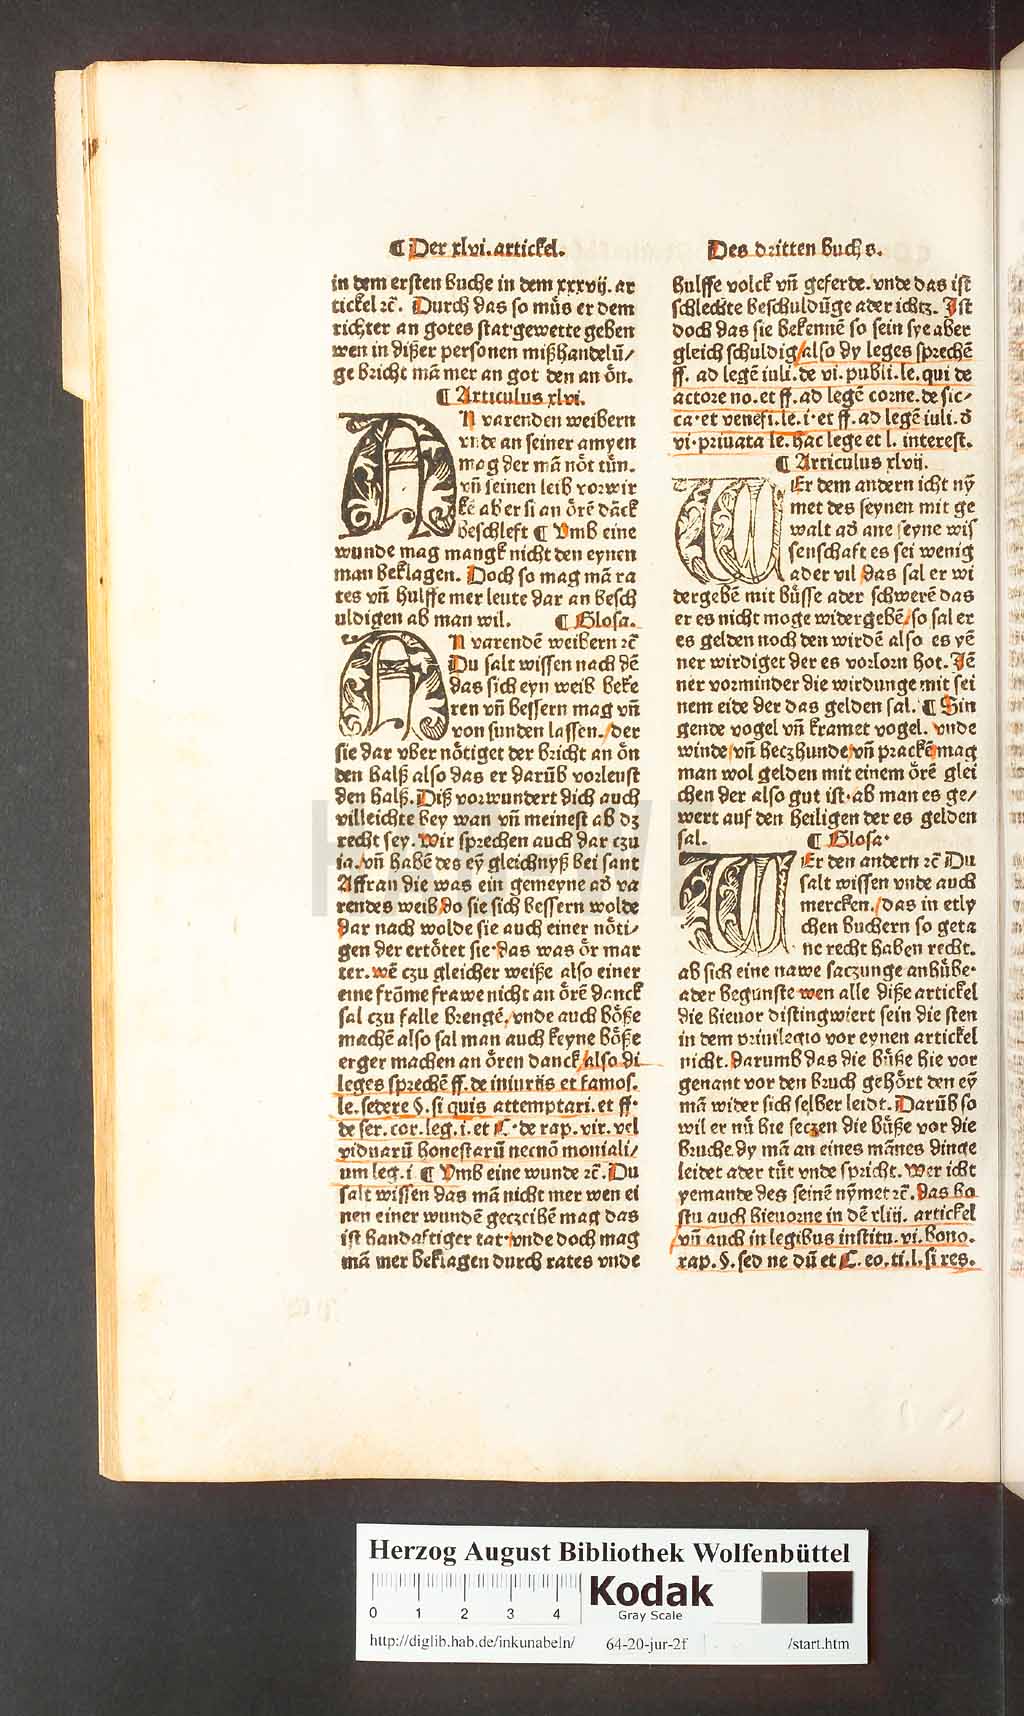 ¶ Der xlvi. artickel.
in dem ersten buche in dem xxxvij. ar
tickel ⁊c̄. Durch das so müs er dem
richter an gotes stat gewette geben
wen in dißer personen mißhandelū/
ge bricht mā mer an got den an ön.
¶ Articulus xlvi.
AN varenden weibern
vnde an seiner amyen
mag der mā nöt tün.
vn̄ seinen leib vorwir
kē ab er si an örē dāck
beschleft ¶ Vmb eine
wunde mag mangk nicht den eynen
man beklagen. Doch so mag mā ra
tes vn̄ hulffe mer leute dar an besch
uldigen ab man wil. ¶ Glosa.
AN varendē weibern ⁊c̄
Du salt wissen nach dē
das sich eyn weib beke
ren vn̄ bessern mag vn̄
von sunden lassen. / der
sie dar vber nötiget der bricht an ön
den halß also das er darūb vorleust
den halß. Diß vorwundert dich auch
villeichte bey wan vn̄ meinest ab dz
recht sey. Wir sprechen auch dar czu
ia. vn̄ habē des eȳ gleichnyß bei sant
Affran die was ein gemeyne ad̄ va
rendes weib do sie sich bessern wolde
dar nach wolde sie auch einer nöti/
gen der ertötet sie· das was ör mar
ter. wē czu gleicher weiße also einer
eine frōme frawe nicht an örē danck
sal czu falle brengē. vnde auch böße
machē also sal man auch keyne böße
erger machen an ören danck / also di
leges sprechē ff. de iniurijs et famos.
le. sedere §. si quis attemptari. et ff·
de ser. cor. leg. i. et C· de rap. vir. vel
viduarū honestarū necnō moniali/
um leg. i ¶ Vmb eine wunde ⁊c̄. Du
salt wissen das mā nicht mer wen ei
nen einer wundē geczeihē mag das
ist handaftiger tat· vnde doch mag
mā mer beklagen durch rates vnde
Des dritten buchs.
hulffe volck vn̄ geferde. vnde das ist
schlechte beschuldüge ader ichtz. Ist
doch das sie bekennē so sein sye aber
gleich schuldig / also dy leges sprechē
ff. ad legē iuli. de vi. publi. le. qui de
actore no. et ff. ad legē corne. de sic/
ca· et venefi. le. i· et ff. ad legē iuli. d̄
vi· priuata le. hac lege et l. interest.
¶ Articulus xlvij.
WEr dem andern icht nȳ
met des seynen mit ge
walt ad̄ ane seyne wis
senschaft es sei wenig
ader vil das sal er wi
dergebē mit büsse ader schwerē das
er es nicht moge widergebē / so sal er
es gelden noch den wirdē also es yē
ner wirdiget der es vorlorn hot. Jē
ner vorminder die wirdunge mit sei
nem eide der das gelden sal. ¶ Sin
gende vogel vn̄ kramet vogel. vnde
winde vn̄ heczhunde vn̄ prackē mag
man wol gelden mit einem örē glei
chen der also gut ist· ab man es ge/
wert auf den heiligen der es gelden
sal. ¶ Glosa·
WEr den andern ⁊c̄ Du
salt wissen vnde auch
mercken. / das in etly
chen buchern so geta
ne recht haben recht.
ab sich eine nawe saczunge anhübe·
ader begunste wen alle diße artickel
die hieuor distingwiert sein die sten
in dem priuilegio vor eynen artickel
nicht. darumb das die büße hie vor
genant vor den bruch gehört den eȳ
mā wider sich selber leidt. Darūb so
wil er nü hie seczen die büße vor die
bruche dy mā an eines mānes dinge
leidet ader tüt vnde spricht. Wer icht
yemande des seinē nȳmet ⁊c̄. das ho
stu auch hieuorne in dē xliij. artickel
vn̄ auch in legibus institu. vi. bono.
rap. §. sed ne dū et C. eo. ti. l. si res.
HAB-WF
Herzog August Bibliothek Wolfenbüttel
0 1 2 3 4
Kodak
Gray Scale
http://diglib.hab.de/inkunabeln/ 64-20-jur-2f /start.htm